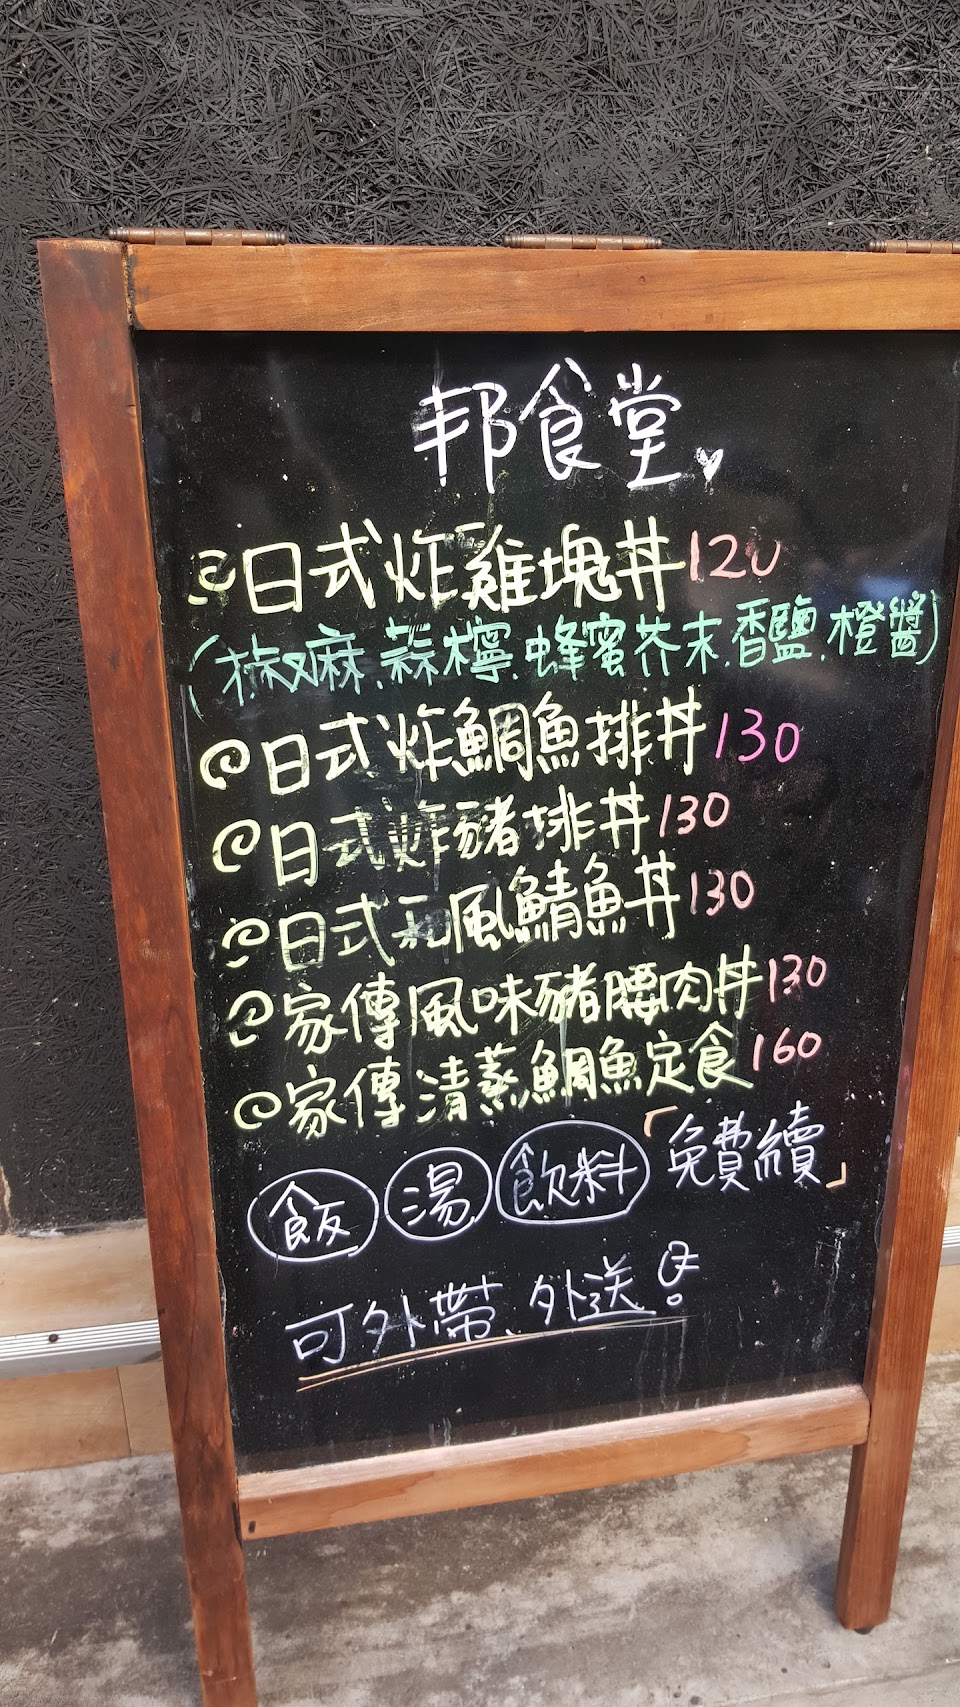 邦食堂
日式炸雞塊丼120
(椒麻、蒜檸、蜂蜜芥末、香鹽、橙醬)
日式炸鯛魚排丼130
日式炸豬排丼130
日式和風鯖魚丼130
家傳風味豬腰肉丼130
家傳清蒸鯛魚定食160
飯 湯 飲料「免費續」
可外帶、外送!